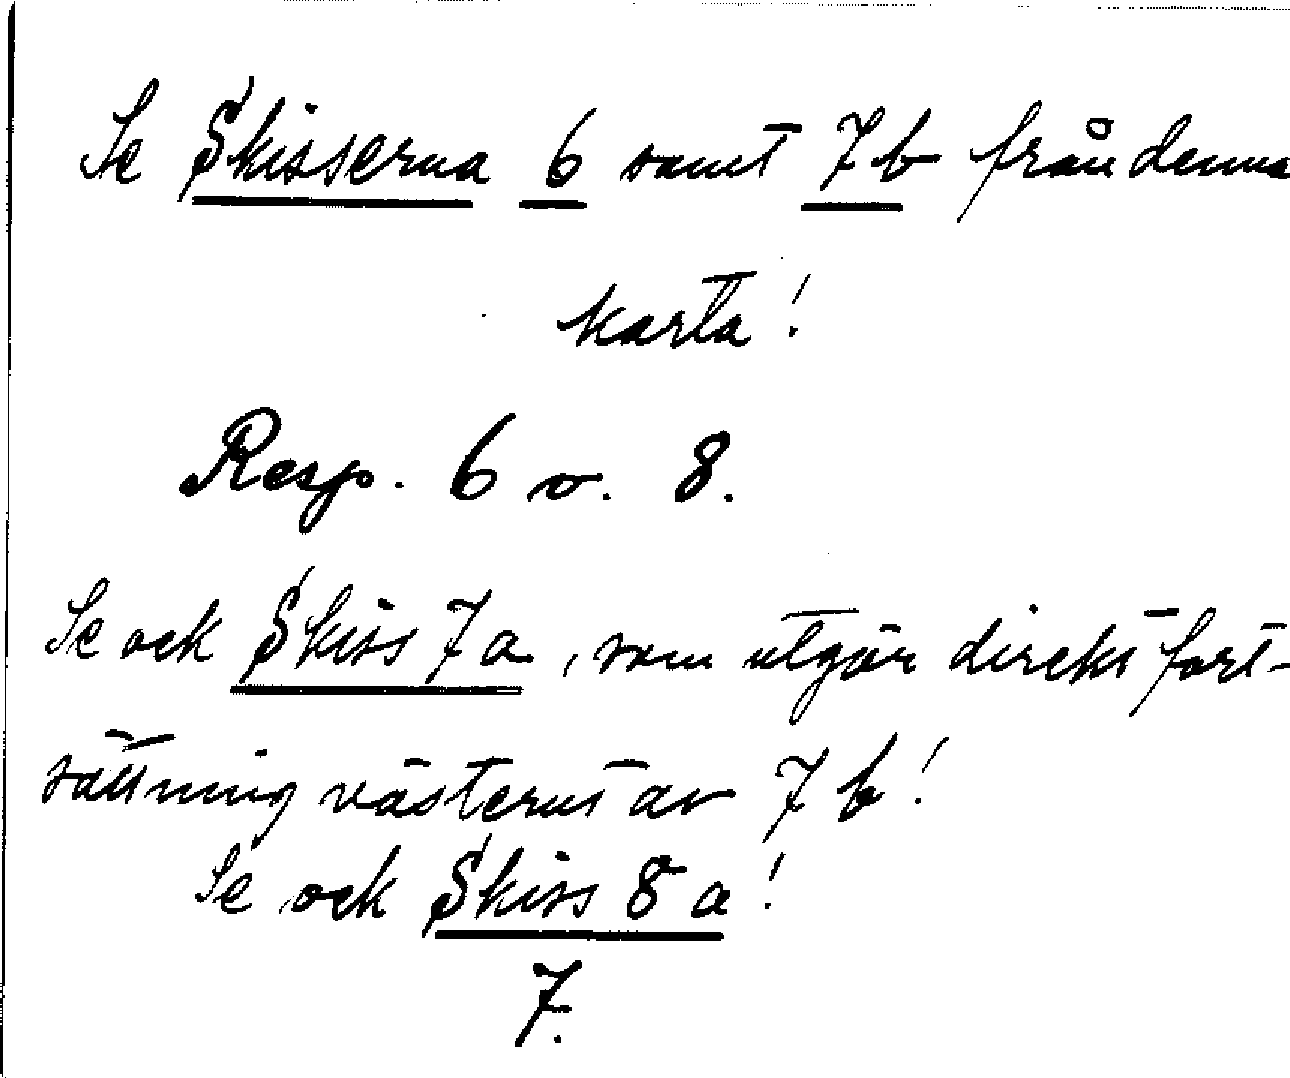 Se Skisserna 6 samt 7b från denna
karta!
Resp. 6 o. 8.
Se ock Skiss 7a, som utgör direkt fort-
sättning västerut av 7b!
Se ock Skiss 8a!
7.